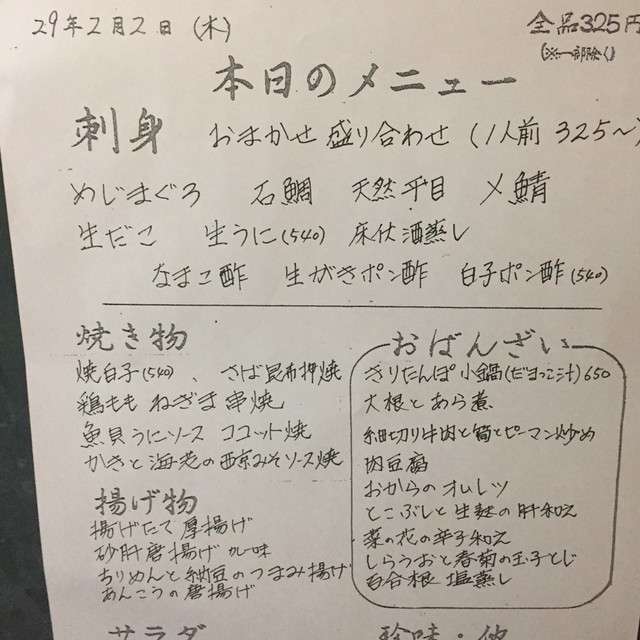 29年2月2日(木)
全品325円
(※一部除く)
本日のメニュー
刺身 おまかせ盛り合わせ(1人前 325〜)
めじまぐろ 石鯛 天然平目 〆鯖
生だこ 生うに(540) 床伏酒蒸し
なまこ酢 生がきポン酢 白子ポン酢(540)
焼き物
焼白子(540)、さば昆布押焼
鶏もも ねぎま 串焼
魚貝うにソース ココット焼
かきと海老の西京みそソース焼
揚げ物
揚げたて厚揚げ
砂肝唐揚げ カレー味
ちりめんと納豆のつまみ揚げ
あんこうの唐揚げ
おばんざい
きりたんぽ小鍋(だまっこ汁)650
大根とあら煮
細切り牛肉と筍とピーマン炒め
肉豆腐
おからのオムレツ
とこぶしと生麩の肝和え
菜の花の辛子和え
しらうおと春菊の玉子とじ
百合根 塩蒸し
サラダ
珍味・他